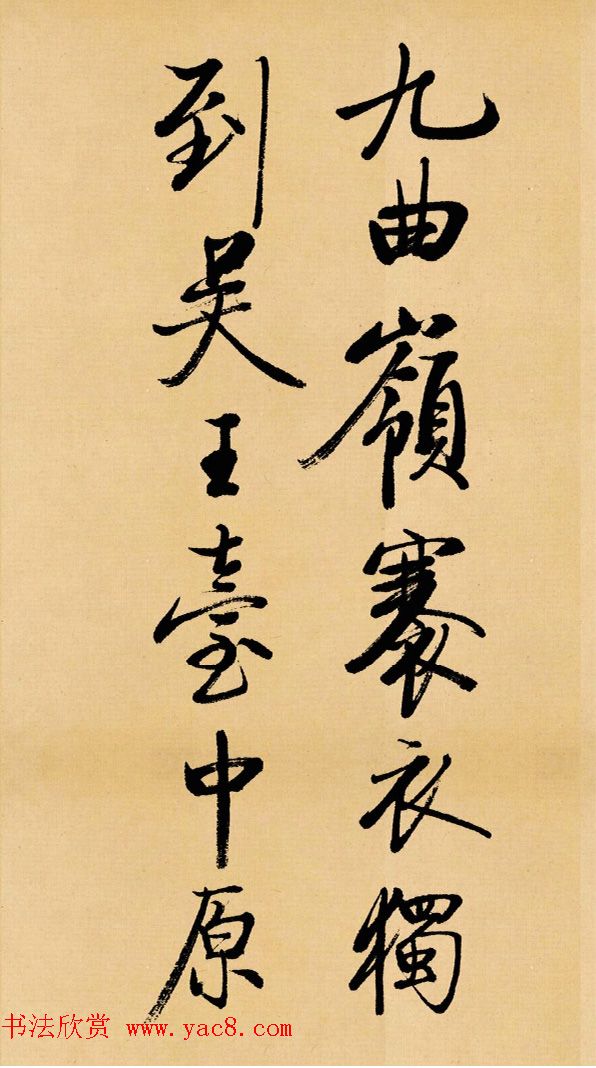 九曲嶺褰衣獨
到吴王臺中原
书法欣赏 www.yac8.com